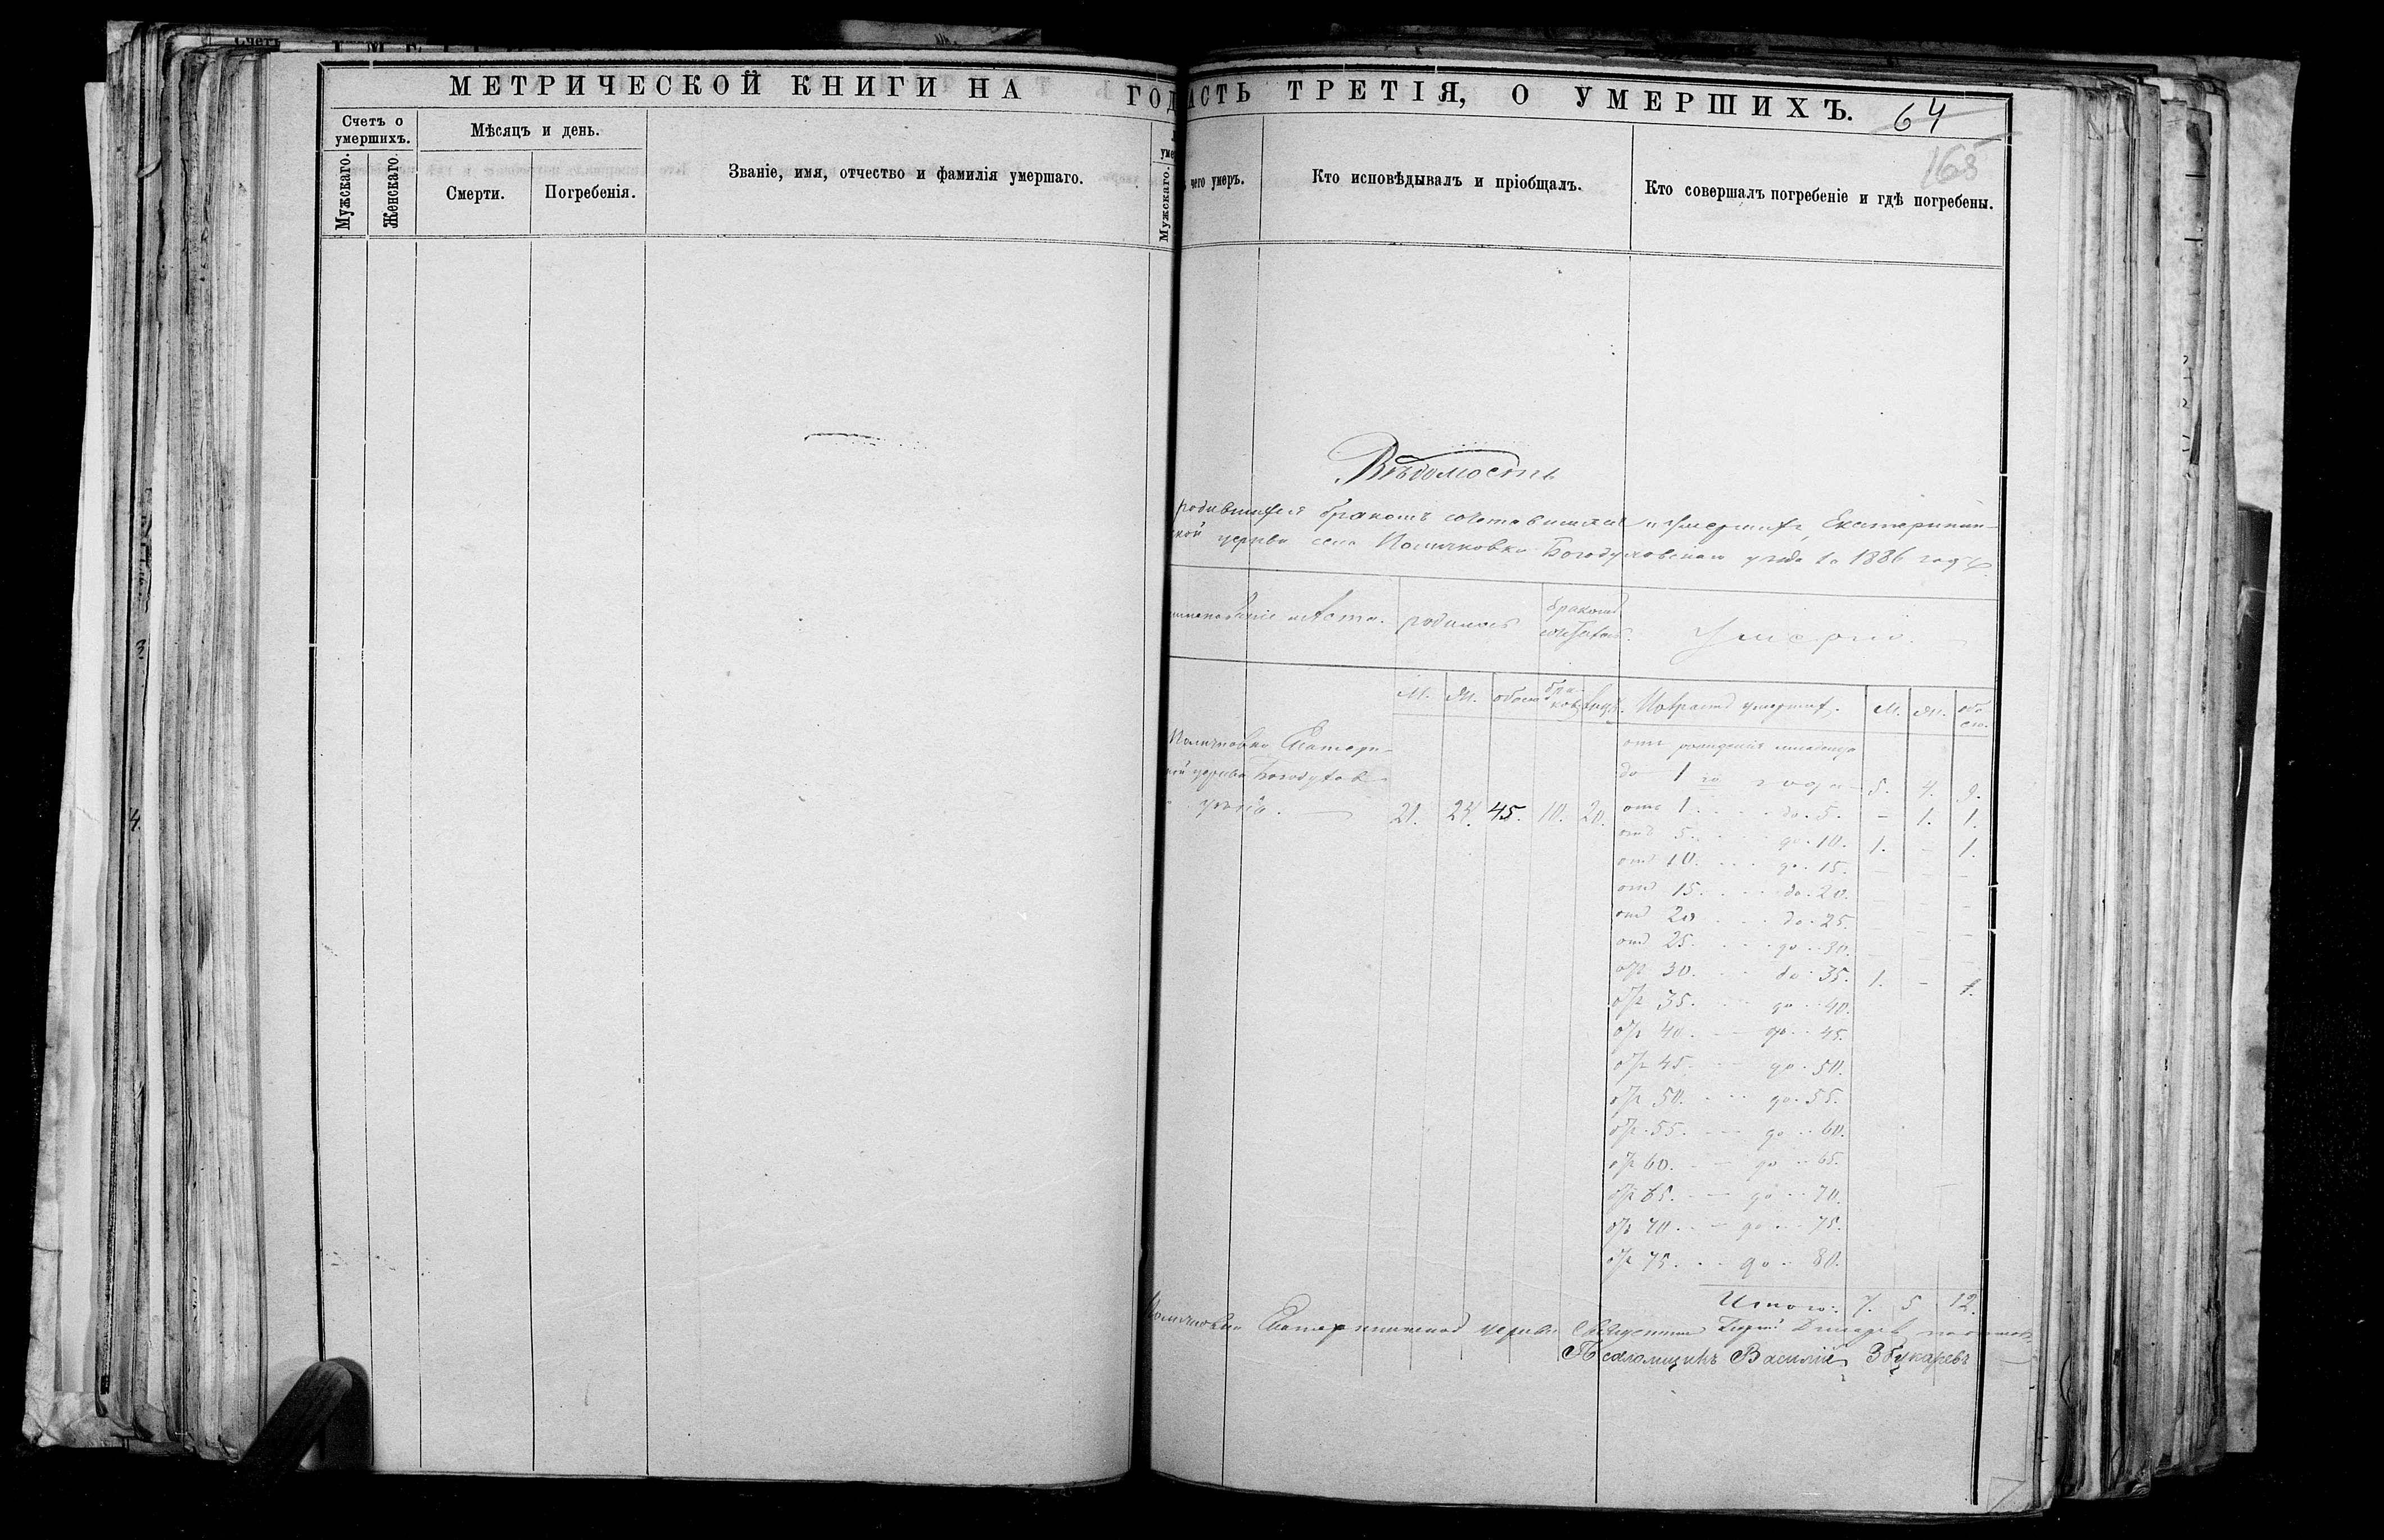 МЕТРИЧЕСКОЙ КНИГИ НА ГОД
Счетъ о умершихъ.
Мужскаго.
Женскаго.
Мѣсяцъ и день.
Смерти.
Погребенія.
Званіе, имя, отчество и фамилія умершаго.
Мужскаго.
АСТЬ ТРЕТІЯ, О УМЕРШИХЪ.
64
168
чего умеръ.
Кто исповѣдывалъ и пріобщалъ.
Кто совершалъ погребеніе и гдѣ погребены.
Вѣдомость
родившихся бракомъ сочетавшихся и умершихъ, Екатеринин-
ской церкви села Богодуховскаго уѣзда за 1886 годъ.
мѣста. родилось бракомъ сочеталось. Умерло.
М. Ж. обоего бра-ковъ М. Ж. обо-его.
Екатери-
ной церкви Богодухов
уѣзда. 21. 24. 45. 10. 20.
отъ рожденія младенца
до 1 го года 5. 4. 9.
отъ 1. до. 5. – 1. 1.
отъ 5. до. 10. 1. – 1.
отъ 10. до. 15. – – –
отъ 15. до. 20. – – –
отъ 20 до. 25. – – –
отъ 25. до 30. – – –
отъ 30. до 35. 1. – 1.
отъ 35. до 40.
отъ 40. до 45.
отъ 45. до. 50.
отъ 50. до. 55.
отъ 55. до 60.
отъ 60. до 65.
отъ 65. до 70.
отъ 70. до 75.
отъ 75. до 80.
Итого: 7. 5 12.
Екатерининской церкви Священникъ
Псаломщикъ Василій Збукаревъ